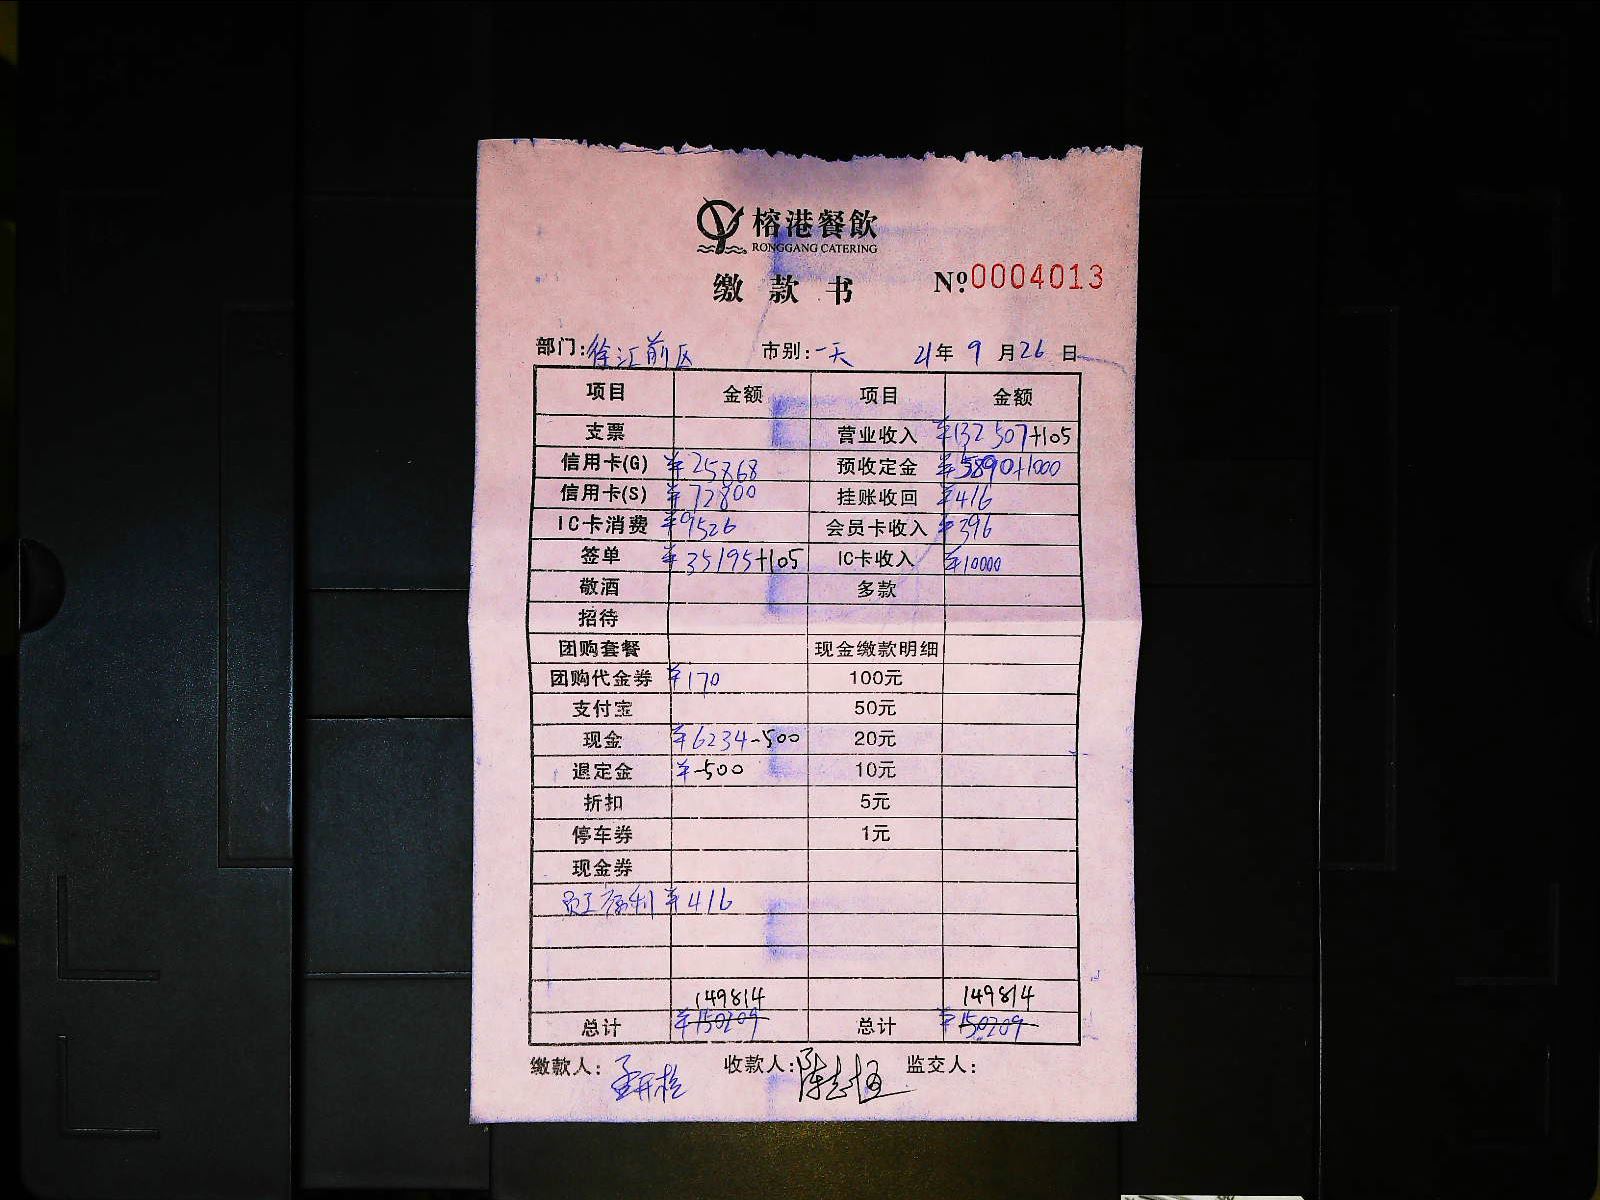 榕港餐飲
RONGGANG CATERING
缴款书 Nº0004013
部门:徐汇前区 市别:一天 21年9月26日
项目 金额 项目 金额
支票 营业收入 ¥132507+105
信用卡(G) ¥25868 预收定金 ¥5890+1000
信用卡(S) ¥72800 挂账收回 ¥416
IC卡消费 ¥9526 会员卡收入 ¥396
签单 ¥35195+105 IC卡收入 ¥10000
敬酒 多款
招待
团购套餐 现金缴款明细
团购代金券 ¥170 100元
支付宝 50元
现金 ¥6234-500 20元
退定金 ¥-500 10元
折扣 5元
停车券 1元
现金券
员工福利 ¥416
149814 149814
总计 ¥150209 总计 ¥150209
缴款人: 收款人: 监交人: